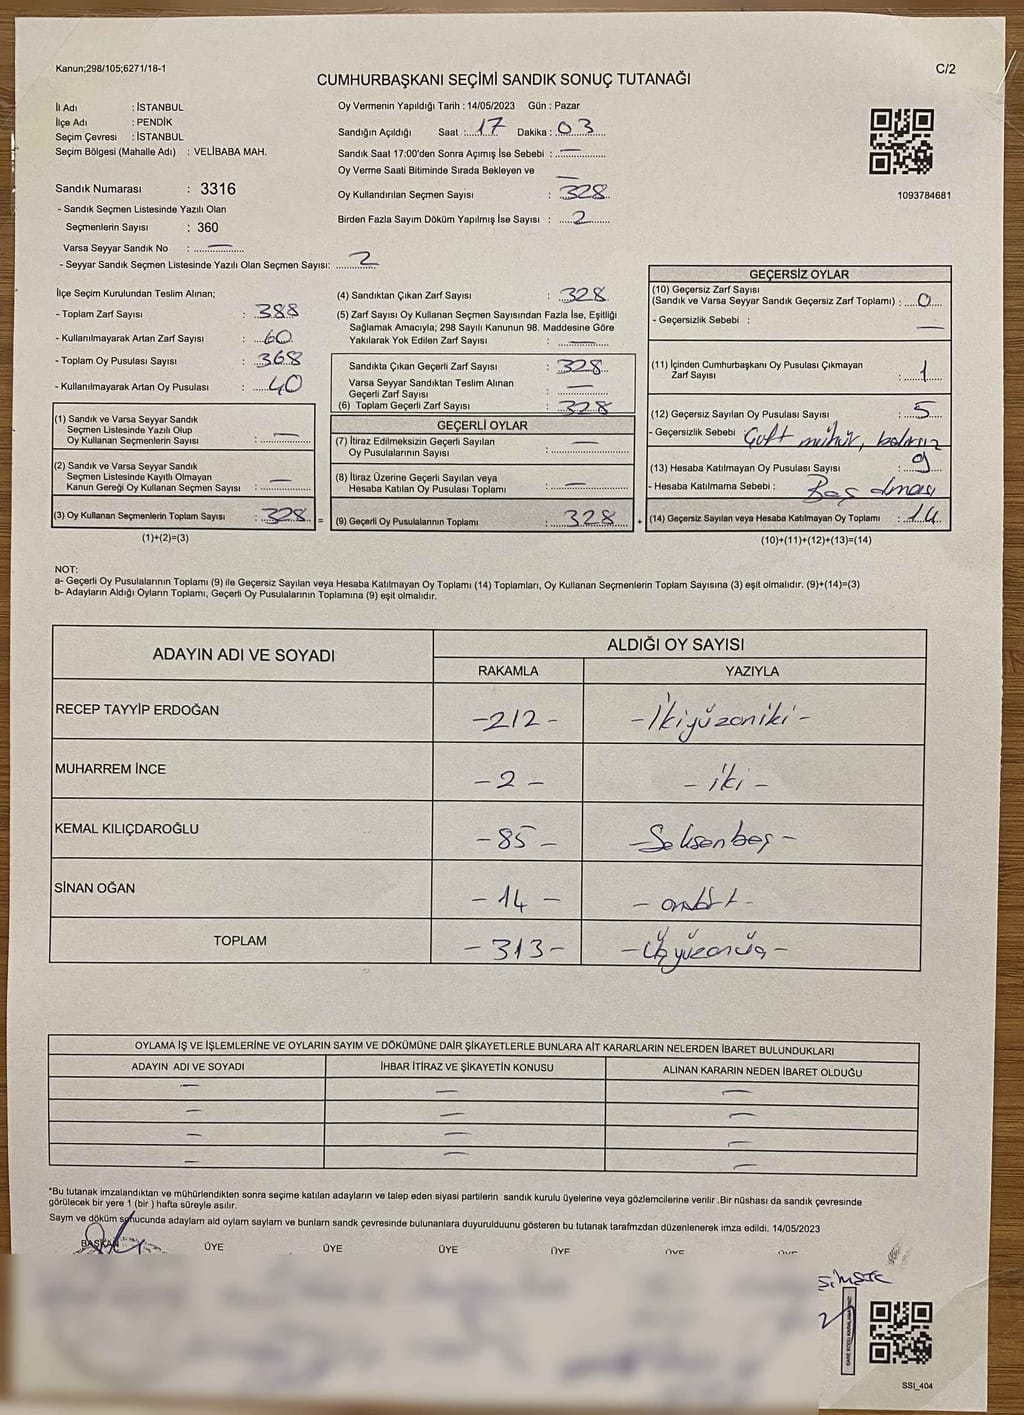 Kanun;298/105;6271/18-1
C/2
CUMHURBAŞKANI SEÇİMİ SANDIK SONUÇ TUTANAĞI
İl Adı : İSTANBUL
İlçe Adı : PENDİK
Seçim Çevresi : İSTANBUL
Seçim Bölgesi (Mahalle Adı) : VELİBABA MAH.
Sandık Numarası : 3316
- Sandık Seçmen Listesinde Yazılı Olan
Seçmenlerin Sayısı : 360
Varsa Seyyar Sandık No : —
- Seyyar Sandık Seçmen Listesinde Yazılı Olan Seçmen Sayısı: 2
Oy Vermenin Yapıldığı Tarih : 14/05/2023 Gün : Pazar
Sandığın Açıldığı Saat : 17 Dakika : 03
Sandık Saat 17:00'den Sonra Açımış İse Sebebi : —
Oy Verme Saati Bitiminde Sırada Bekleyen ve
Oy Kullandırılan Seçmen Sayısı : 328
Birden Fazla Sayım Döküm Yapılmış İse Sayısı : 2
1093784681
İlçe Seçim Kurulundan Teslim Alınan;
- Toplam Zarf Sayısı : 388
- Kullanılmayarak Artan Zarf Sayısı : 60
- Toplam Oy Pusulası Sayısı : 368
- Kullanılmayarak Artan Oy Pusulası : 40
(1) Sandık ve Varsa Seyyar Sandık
Seçmen Listesinde Yazılı Olup
Oy Kullanan Seçmenlerin Sayısı : —
(2) Sandık ve Varsa Seyyar Sandık
Seçmen Listesinde Kayıtlı Olmayan
Kanun Gereği Oy Kullanan Seçmen Sayısı : —
(3) Oy Kullanan Seçmenlerin Toplam Sayısı : 328 =
(1)+(2)=(3)
(4) Sandıktan Çıkan Zarf Sayısı : 328
(5) Zarf Sayısı Oy Kullanan Seçmen Sayısından Fazla İse, Eşitliği
Sağlamak Amacıyla; 298 Sayılı Kanunun 98. Maddesine Göre
Yakılarak Yok Edilen Zarf Sayısı : —
Sandıkta Çıkan Geçerli Zarf Sayısı : 328
Varsa Seyyar Sandıktan Teslim Alınan
Geçerli Zarf Sayısı : —
(6) Toplam Geçerli Zarf Sayısı : 328
GEÇERLİ OYLAR
(7) İtiraz Edilmeksizin Geçerli Sayılan
Oy Pusulalarının Sayısı : —
(8) İtiraz Üzerine Geçerli Sayılan veya
Hesaba Katılan Oy Pusulası Toplamı : —
(9) Geçerli Oy Pusulalarının Toplamı : 328 +
GEÇERSİZ OYLAR
(10) Geçersiz Zarf Sayısı
(Sandık ve Varsa Seyyar Sandık Geçersiz Zarf Toplamı) : 0
- Geçersizlik Sebebi : —
(11) İçinden Cumhurbaşkanı Oy Pusulası Çıkmayan
Zarf Sayısı : 1
(12) Geçersiz Sayılan Oy Pusulası Sayısı : 5
- Geçersizlik Sebebi : Çift mühür,
(13) Hesaba Katılmayan Oy Pusulası Sayısı : 9
- Hesaba Katılmama Sebebi : Boş olması
(14) Geçersiz Sayılan veya Hesaba Katılmayan Oy Toplamı : 14
(10)+(11)+(12)+(13)=(14)
NOT:
a- Geçerli Oy Pusulalarının Toplamı (9) ile Geçersiz Sayılan veya Hesaba Katılmayan Oy Toplamı (14) Toplamları, Oy Kullanan Seçmenlerin Toplam Sayısına (3) eşit olmalıdır. (9)+(14)=(3)
b- Adayların Aldığı Oyların Toplamı, Geçerli Oy Pusulalarının Toplamına (9) eşit olmalıdır.
ADAYIN ADI VE SOYADI
ALDIĞI OY SAYISI
RAKAMLA YAZIYLA
RECEP TAYYİP ERDOĞAN -212- -İkiyüzoniki-
MUHARREM İNCE -2- -iki-
KEMAL KILIÇDAROĞLU -85- -Seksenbeş-
SİNAN OĞAN -14- -ondört-
TOPLAM -313- -Üçyüzonüç-
OYLAMA İŞ VE İŞLEMLERİNE VE OYLARIN SAYIM VE DÖKÜMÜNE DAİR ŞİKAYETLERLE BUNLARA AİT KARARLARIN NELERDEN İBARET BULUNDUKLARI
ADAYIN ADI VE SOYADI İHBAR İTİRAZ VE ŞİKAYETİN KONUSU ALINAN KARARIN NEDEN İBARET OLDUĞU
— — —
— — —
— — —
— — —
*Bu tutanak imzalandıktan ve mühürlendikten sonra seçime katılan adayların ve talep eden siyasi partilerin sandık kurulu üyelerine veya gözlemcilerine verilir .Bir nüshası da sandık çevresinde
görülecek bir yere 1 (bir ) hafta süreyle asılır.
Saym ve döküm sonucunda adaylam ald oylam saylam ve bunlam sandk çevresinde bulunanlara duyurulduunu gösteren bu tutanak tarafmzdan düzenlenerek imza edildi. 14/05/2023
BAŞKAN ÜYE ÜYE ÜYE ÜYE ÜYE ÜYE
SSI_404